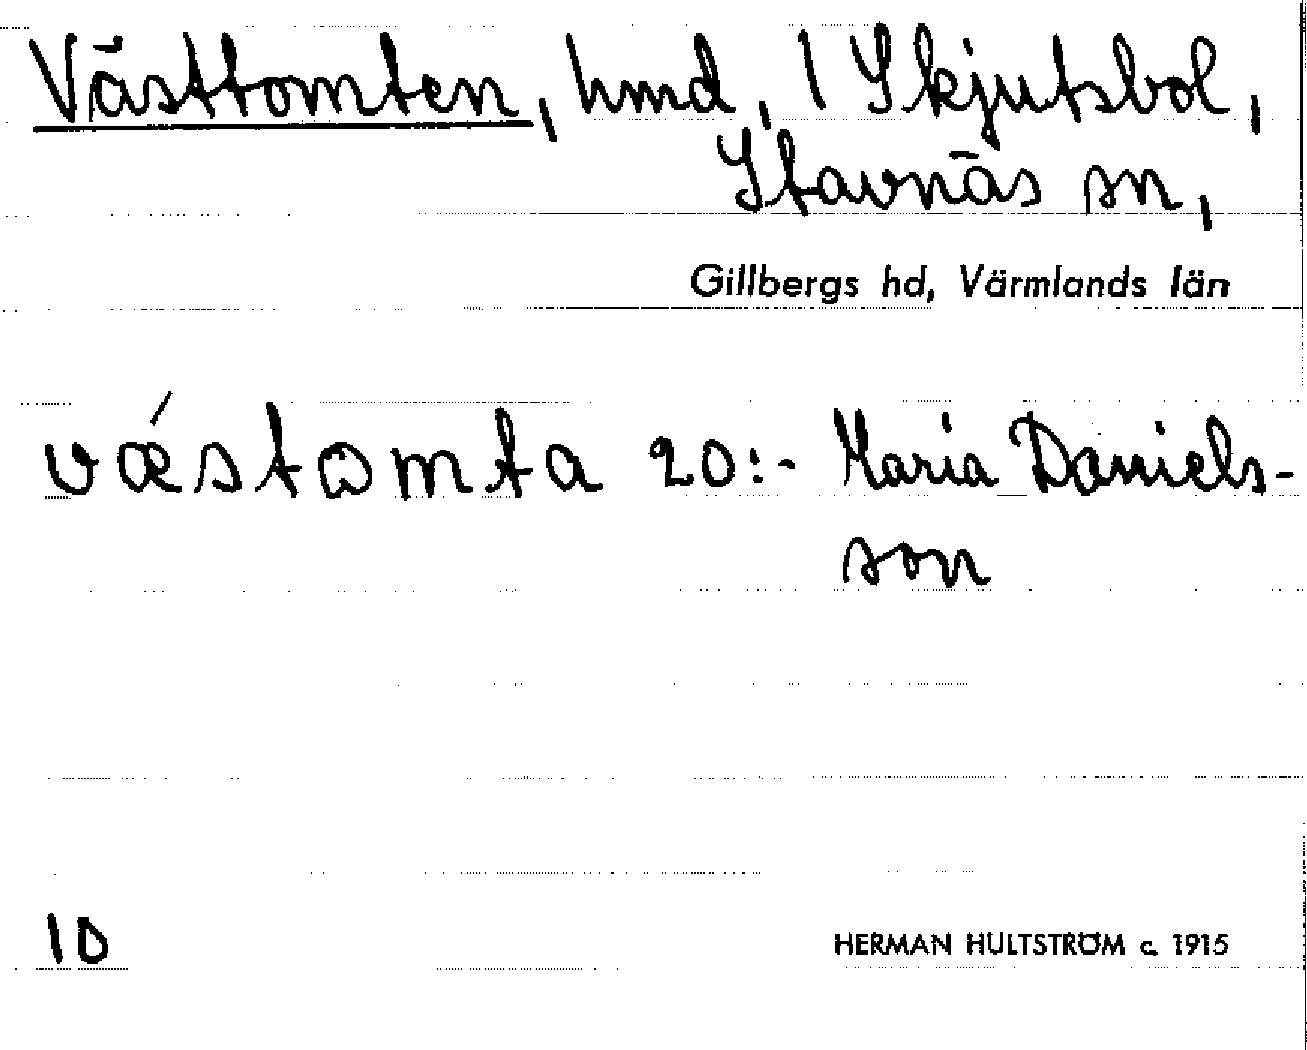 Västtomten, hmd, 1 Skjutsbol,
Stavnäs sn,
Gillbergs hd, Värmlands län
væ´stωmta 20:- Maria Daniels-
son
10
HERMAN HULTSTRÖM c. 1915